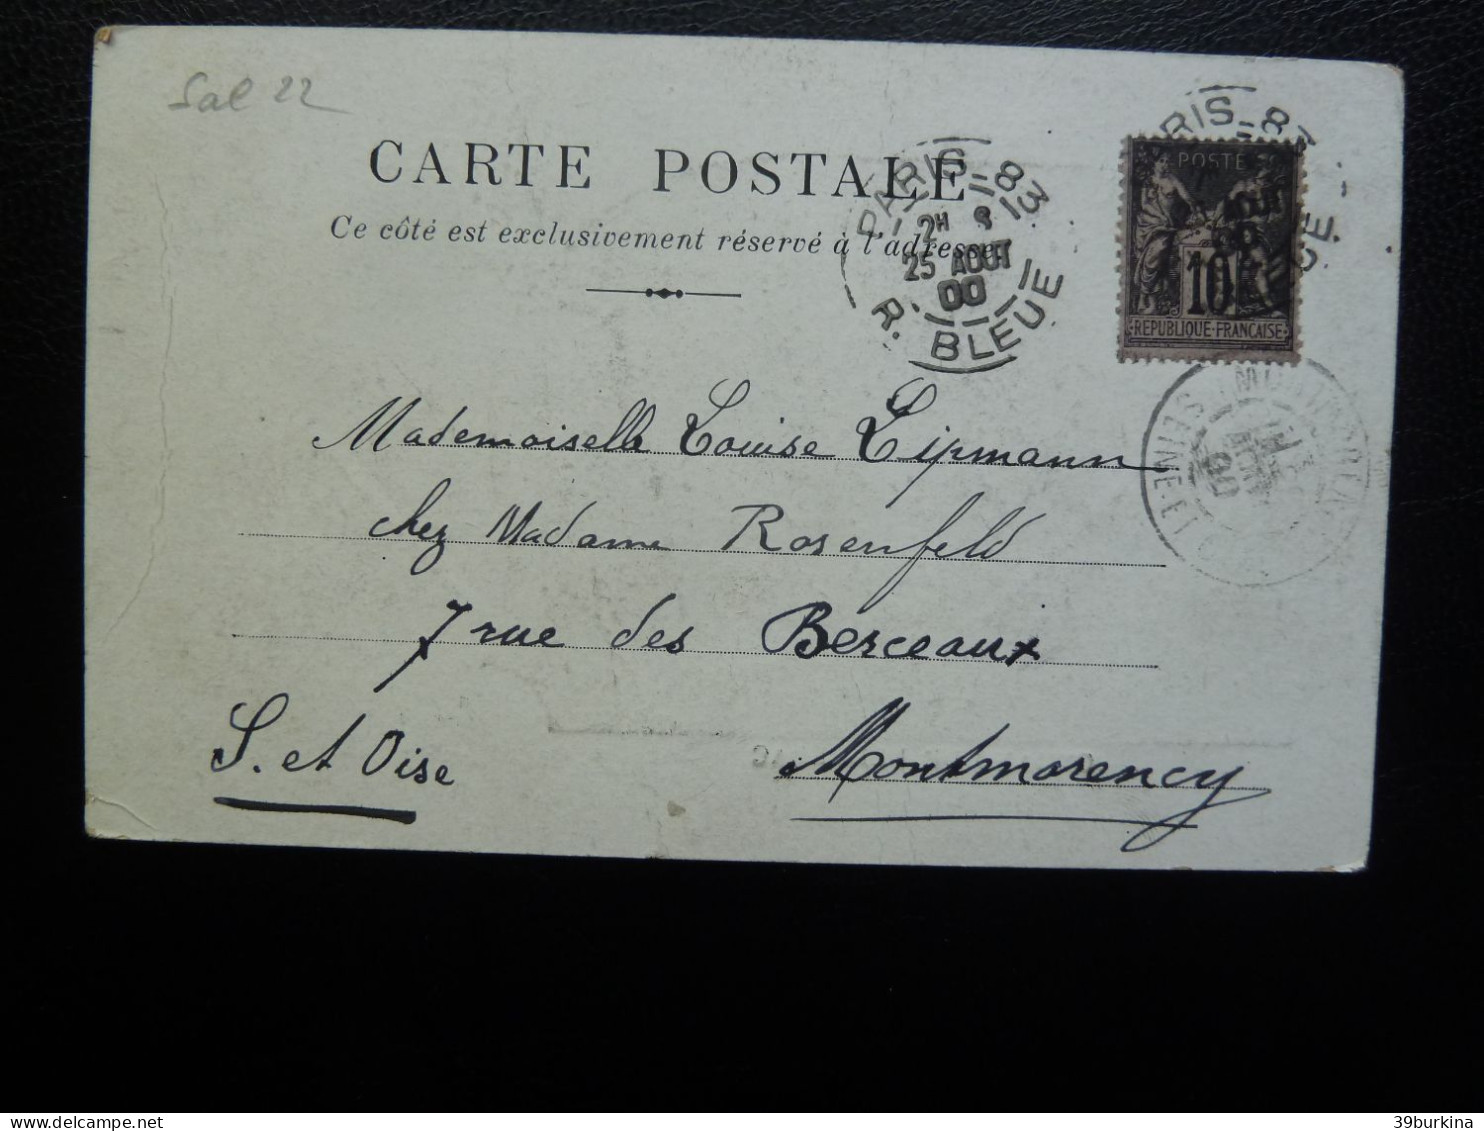 Sal 22
CARTE POSTALE
Ce côté est exclusivement réservé à l'adresse
PARIS-83
2H 8
25 AOUT
00
R. BLEUE
RIS-83
POSTE
AOUT
00
10
REPUBLIQUE-FRANÇAISE
SEINE-E
00
Mademoiselle Louise Lipmann
chez Madame Rosenfeld
7 rue des Berceaux
S. et Oise Montmorency
39burkina